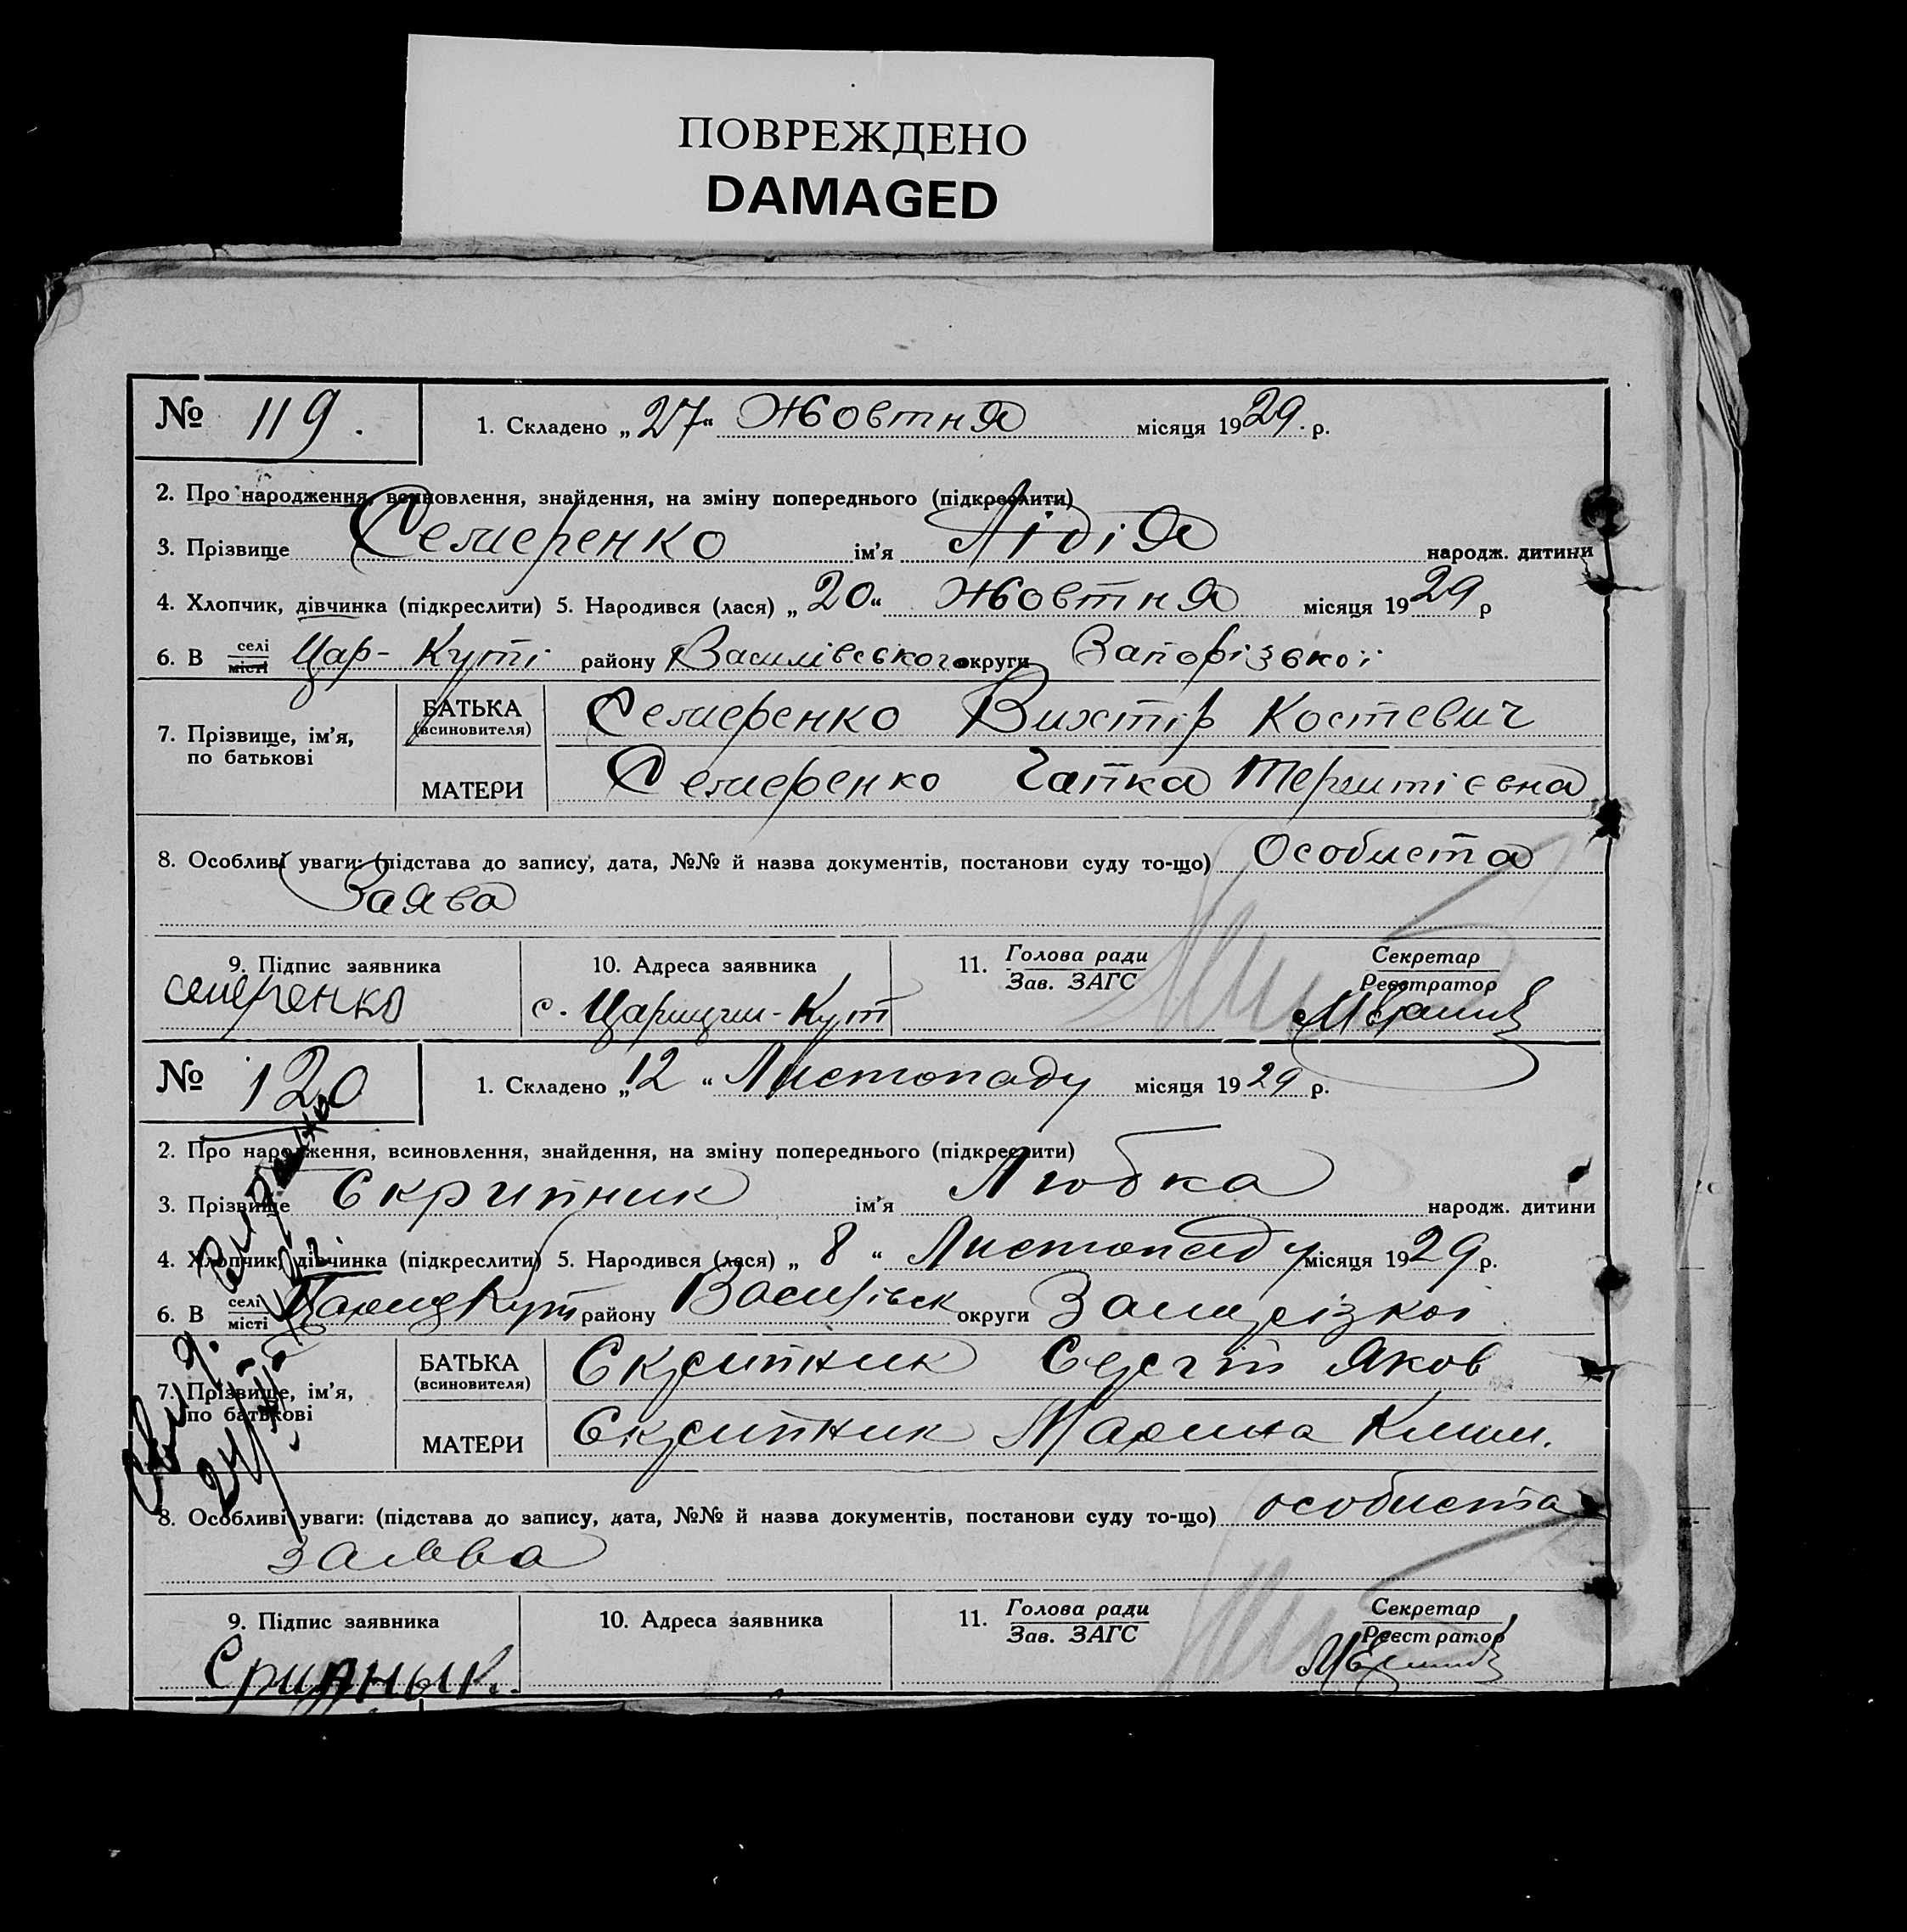 ПОВРЕЖДЕНО
DAMAGED
№ 119.
1. Складено „27“ Жовтня місяця 1929. р.
2. Про народження, всиновлення, знайдення, на зміну попереднього (підкреслити)
3. Прізвище Семеренко ім'я Лідія народж. дитини
4. Хлопчик, дівчинка (підкреслити) 5. Народився (лася) „20“ Жовтня місяця 1929 р
6. В селі місті Цар-Куті району Василівського округи Запорізької
7. Прізвище, ім'я, по батькові
БАТЬКА (всиновителя) Семеренко Вихтір Костевич
МАТЕРИ Семеренко Гапка
8. Особливі уваги: (підстава до запису, дата, №№ й назва документів, постанови суду то-що) Особиста
Заява
9. Підпис заявника
10. Адреса заявника
11. Голова ради
Зав. ЗАГС
Секретар
Реєстратор
семеренко
с. Царицин-Кут
№ 120
1. Складено „12“ Листопаду місяця 1929 р.
2. Про народження, всиновлення, знайдення, на зміну попереднього (підкреслити)
3. Прізвище Скрипник ім'я Любка народж. дитини
4. Хлопчик, дівчинка (підкреслити) 5. Народився (лася) „8“ Листопаду місяця 1929 р.
6. В селі місті району Василівськ округи
7. Прізвище, ім'я, по батькові
БАТЬКА (всиновителя) Скрипник Сергій Яков
МАТЕРИ Скрипник Марина Клим.
8. Особливі уваги: (підстава до запису, дата, №№ й назва документів, постанови суду то-що) особиста
заява
9. Підпис заявника
10. Адреса заявника
11. Голова ради
Зав. ЗАГС
Секретар
Реєстратор